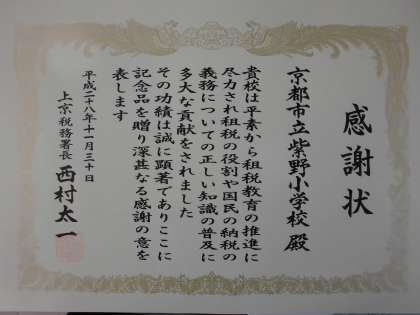 感謝状
京都市立紫野小学校殿
貴校は平素から租税教育の推進に
尽力され租税の役割や国民の納税の
義務についての正しい知識の普及に
多大な貢献をされました
その功績は誠に顕著でありここに
記念品を贈り深甚なる感謝の意を
表します
平成二十八年十一月三十日
上京税務署長 西村太一